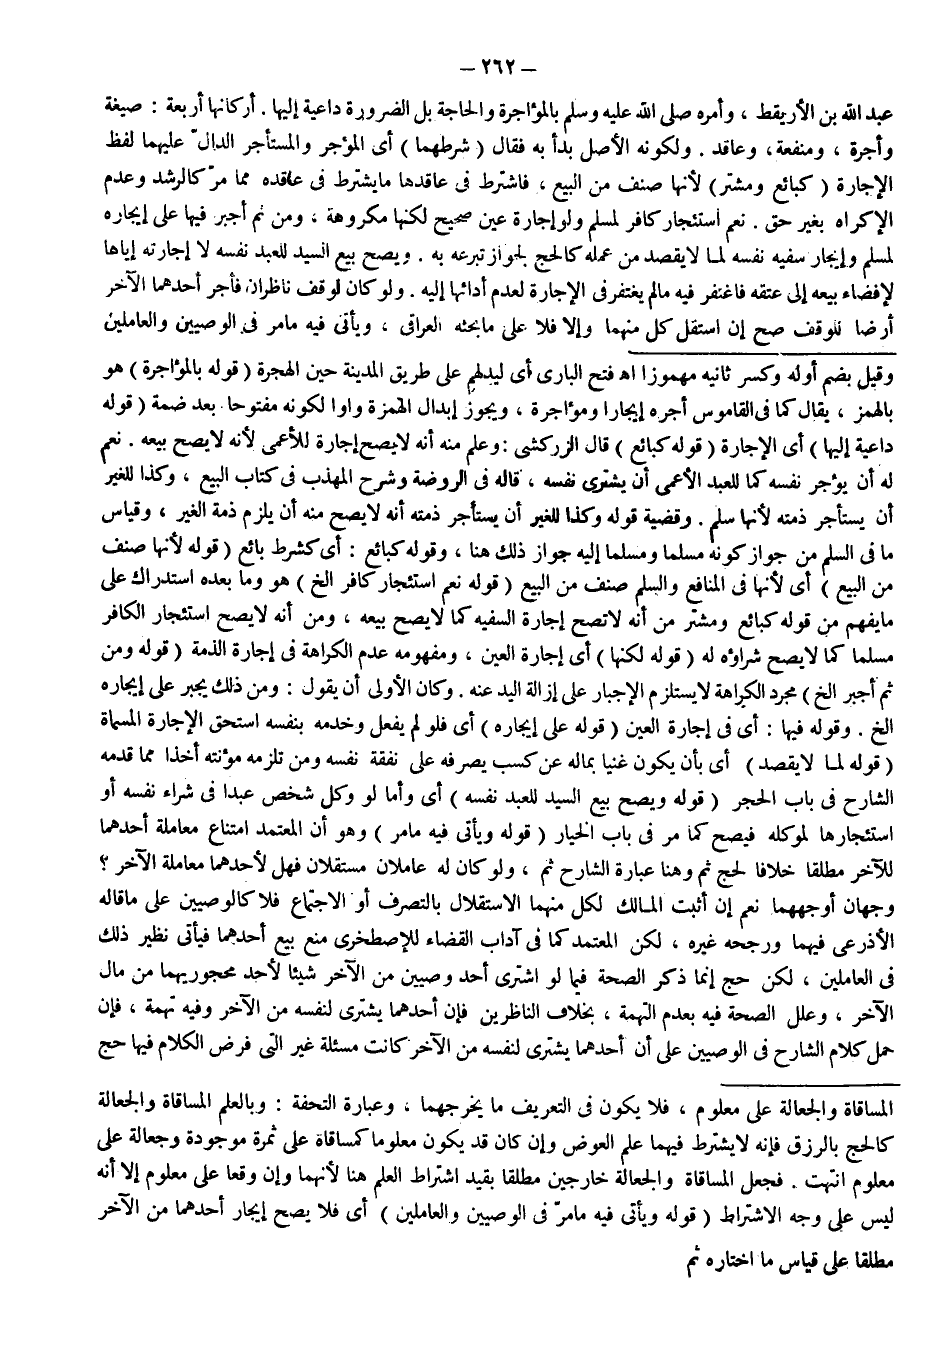 – ٢٦٢ –
عبد الله بن الأريقط ، وأمره صلى الله عليه وسلم بالمؤاجرة والحاجة بل الضرورة داعية إليها . أركانها أربعة : صيغة
وأجرة ، ومنفعة، وعاقد . ولكونه الأصل بدأ به فقال ( شرطهما ) أى المؤجر والمستأجر الدالّ عليهما لفظ
الإجارة ( كبائع ومشتر ) لأنها صنف من البيع ، فاشترط فى عاقدها مايشترط فى عاقده مما مرّ كالرشد وعدم
الإكراه بغير حق . نعم استئجار كافر لمسلم ولو إجارة عين صحيح لكنها مكروهة ، ومن ثم أجبر فيها على إيجاره
لمسلم وإيجار سفيه نفسه لمـا لايقصد من عمله كالحج لجواز تبرعه به . ويصح بيع السيد للعبد نفسه لا إجارته إياها
لإفضاء بيعه إلى عتقه فاغتفر فيه مالم يغتفر فى الإجارة لعدم أدائها إليه . ولو كان لوقف ناظران فأجر أحدهما الآخر
أرضا للوقف صح إن استقل كل منهما وإلا فلا على مابحثه العراقى ، ويأتى فيه مامر فى الوصيين والعاملين
وقيل بضم أوله وكسر ثانيه مهموزا اهـ فتح البارى أى ليدلهم على طريق المدينة حين الهجرة ( قوله بالمؤاجرة ) هو
بالهمز ، يقال كما فى القاموس أجره إيجارا ومؤاجرة ، ويجوز إبدال الهمزة واوا لكونه مفتوحا بعد ضمة ( قوله
داعية إليها ) أى الإجارة ( قوله كبائع ) قال الزركشى : وعلم منه أنه لايصح إجارة للأعمى لأنه لايصح بيعه . نعم
له أن يؤجر نفسه كما للعبد الأعمى أن يشترى نفسه ، قاله فى الروضة وشرح المهذب فى كتاب البيع ، وكذا للغير
أن يستأجر ذمته لأنها سلم . وقضية قوله وكذا للغير أن يستأجر ذمته أنه لايصح منه أن يلزم ذمة الغير ، وقياس
ما فى السلم من جواز كونه مسلما ومسلما إليه جواز ذلك هنا ، وقوله كبائع : أى كشرط بائع ( قوله لأنها صنف
من البيع ) أى لأنها فى المنافع والسلم صنف من البيع ( قوله نعم استئجار كافر الخ ) هو وما بعده استدراك على
مايفهم من قوله كبائع ومشتر من أنه لاتصح إجارة السفيه كما لايصح بيعه ، ومن أنه لايصح استئجار الكافر
مسلما كما لايصح شراؤه له ( قوله لكنها ) أى إجارة العين ، ومفهومه عدم الكراهة فى إجارة الذمة ( قوله ومن
ثم أجبر الخ ) مجرد الكراهة لايستلزم الإجبار على إزالة اليد عنه . وكان الأولى أن يقول : ومن ذلك يجبر على إيجاره
الخ . وقوله فيها : أى فى إجارة العين ( قوله على إيجاره ) أى فلو لم يفعل وخدمه بنفسه استحق الإجارة المسماة
( قوله لمـا لايقصد ) أى بأن يكون غنيا بماله عن كسب يصرفه على نفقة نفسه ومن تلزمه مؤنته أخذا مما قدمه
الشارح فى باب الحجر ( قوله ويصح بيع السيد للعبد نفسه ) أى وأما لو وكل شخص عبدا فى شراء نفسه أو
استئجارها لموكله فيصح كما مر فى باب الخيار ( قوله ويأتى فيه مامر ) وهو أن المعتمد امتناع معاملة أحدهما
للآخر مطلقا خلافا لحج ثم وهنا عبارة الشارح ثم ، ولو كان له عاملان مستقلان فهل لأحدهما معاملة الآخر ؟
وجهان أوجههما نعم إن أثبت المـالك لكل منهما الاستقلال بالتصرف أو الاجتماع فلا كالوصيين على ماقاله
الأذرعى فيهما ورجحه غيره ، لكن المعتمد كما فى آداب القضاء للإصطخرى منع بيع أحدهما فيأتى نظير ذلك
فى العاملين ، لكن حج إنما ذكر الصحة فيما لو اشترى أحد وصيين من الآخر شيئا لأحد محجوريهما من مال
الآخر ، وعلل الصحة فيه بعدم التهمة ، بخلاف الناظرين فإن أحدهما يشترى لنفسه من الآخر وفيه تهمة ، فإن
حمل كلام الشارح فى الوصيين على أن أحدهما يشترى لنفسه من الآخر كانت مسئلة غير التى فرض الكلام فيها حج
المساقاة والجعالة على معلوم ، فلا يكون فى التعريف ما يخرجهما ، وعبارة التحفة : وبالعلم المساقاة والجعالة
كالحج بالرزق فإنه لايشترط فيهما علم العوض وإن كان قد يكون معلوما كمساقاة على ثمرة موجودة وجعالة على
معلوم انتهت . فجعل المساقاة والجعالة خارجين مطلقا بقيد اشتراط العلم هنا لأنهما وإن وقعا على معلوم إلا أنه
ليس على وجه الاشتراط ( قوله ويأتى فيه مامرّ فى الوصيين والعاملين ) أى فلا يصح إيجار أحدهما من الآخر
مطلقا على قياس ما اختاره ثم